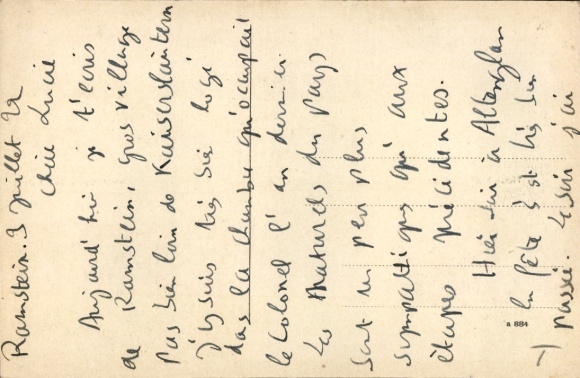 Ramstein. 3 Juillet 22
Chère Lucie
Aujourd'hui je t'écris
de Ramstein, gros village
pas bien loin de Kaiserslautern
J'y suis très bien logé
dans la chambre qu'occupait
le Colonel l'an dernier.
Les naturels du pays
sont un peu plus
sympatiques qu'aux
étapes précédentes.
Hier soir à Altenglan
la fête s'est très bien
passée. Le soir j'ai
a 884